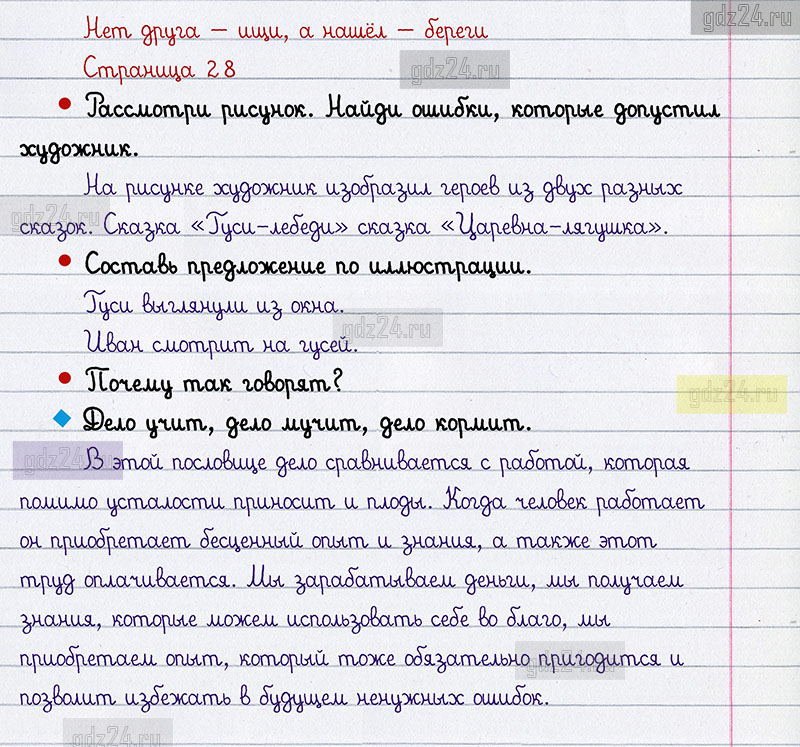 gdz24.ru
Нет друга – ищи, а нашёл – береги
Страница 28
gdz24.ru
• Рассмотри рисунок. Найди ошибки, которые допустил
художник.
На рисунке художник изобразил героев из двух разных
gdz24.ru
сказок. Сказка «Гуси-лебеди» сказка «Царевна-лягушка».
• Составь предложение по иллюстрации.
Гуси выглянули из окна.
gdz24.ru
Иван смотрит на гусей.
• Почему так говорят?
gdz24.ru
◆ Дело учит, дело мучит, дело кормит.
gdz24.ru
В этой пословице дело сравнивается с работой, которая
помимо усталости приносит и плоды. Когда человек работает
он приобретает бесценный опыт и знания, а также этот
труд оплачивается. Мы зарабатываем деньги, мы получаем
знания, которые можем использовать себе во благо, мы
приобретаем опыт, который тоже обязательно пригодится и
gdz24.ru
позволит избежать в будущем ненужных ошибок.
gdz24.ru